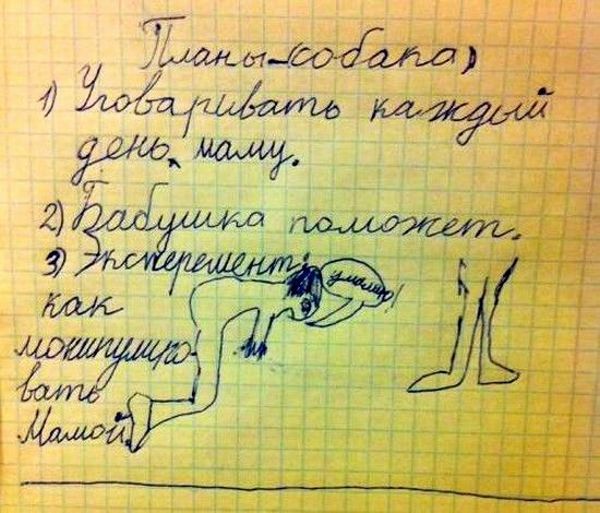 Планы-собака)
1) Уговаривать каждый
день маму.
2) Бабушка поможет.
3) Эксперемент:
умаляю!
как
монипулиро-
вать
Мамой.